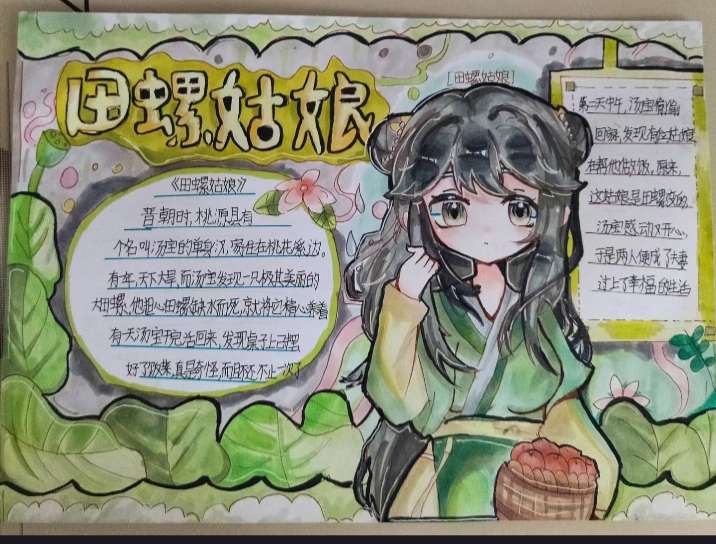 田螺姑娘
[田螺姑娘]
《田螺姑娘》
晋朝时，桃源县有
个名叫汤宝的单身汉，家住在桃花溪边。
有年，天下大旱，而汤宝发现一只极其美丽的
大田螺，他担心田螺缺水而死，就将它精心养着
有天汤宝干完活回来，发现桌子上已摆
好了饭菜，真是奇怪，而且还不止一次了
第二天中午，汤宝偷偷
回家，发现有位姑娘
在帮他做饭，原来，
这姑娘是田螺变的
汤宝感动又开心，
于是两人便成了夫妻
过上了幸福的生活